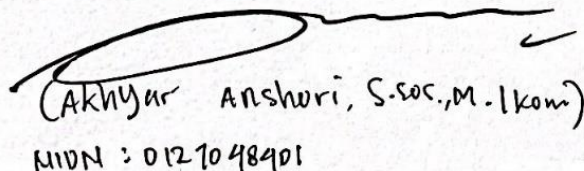 (Akhyar Anshori, S.sos., M.Ikom)
NIDN : 0127048401